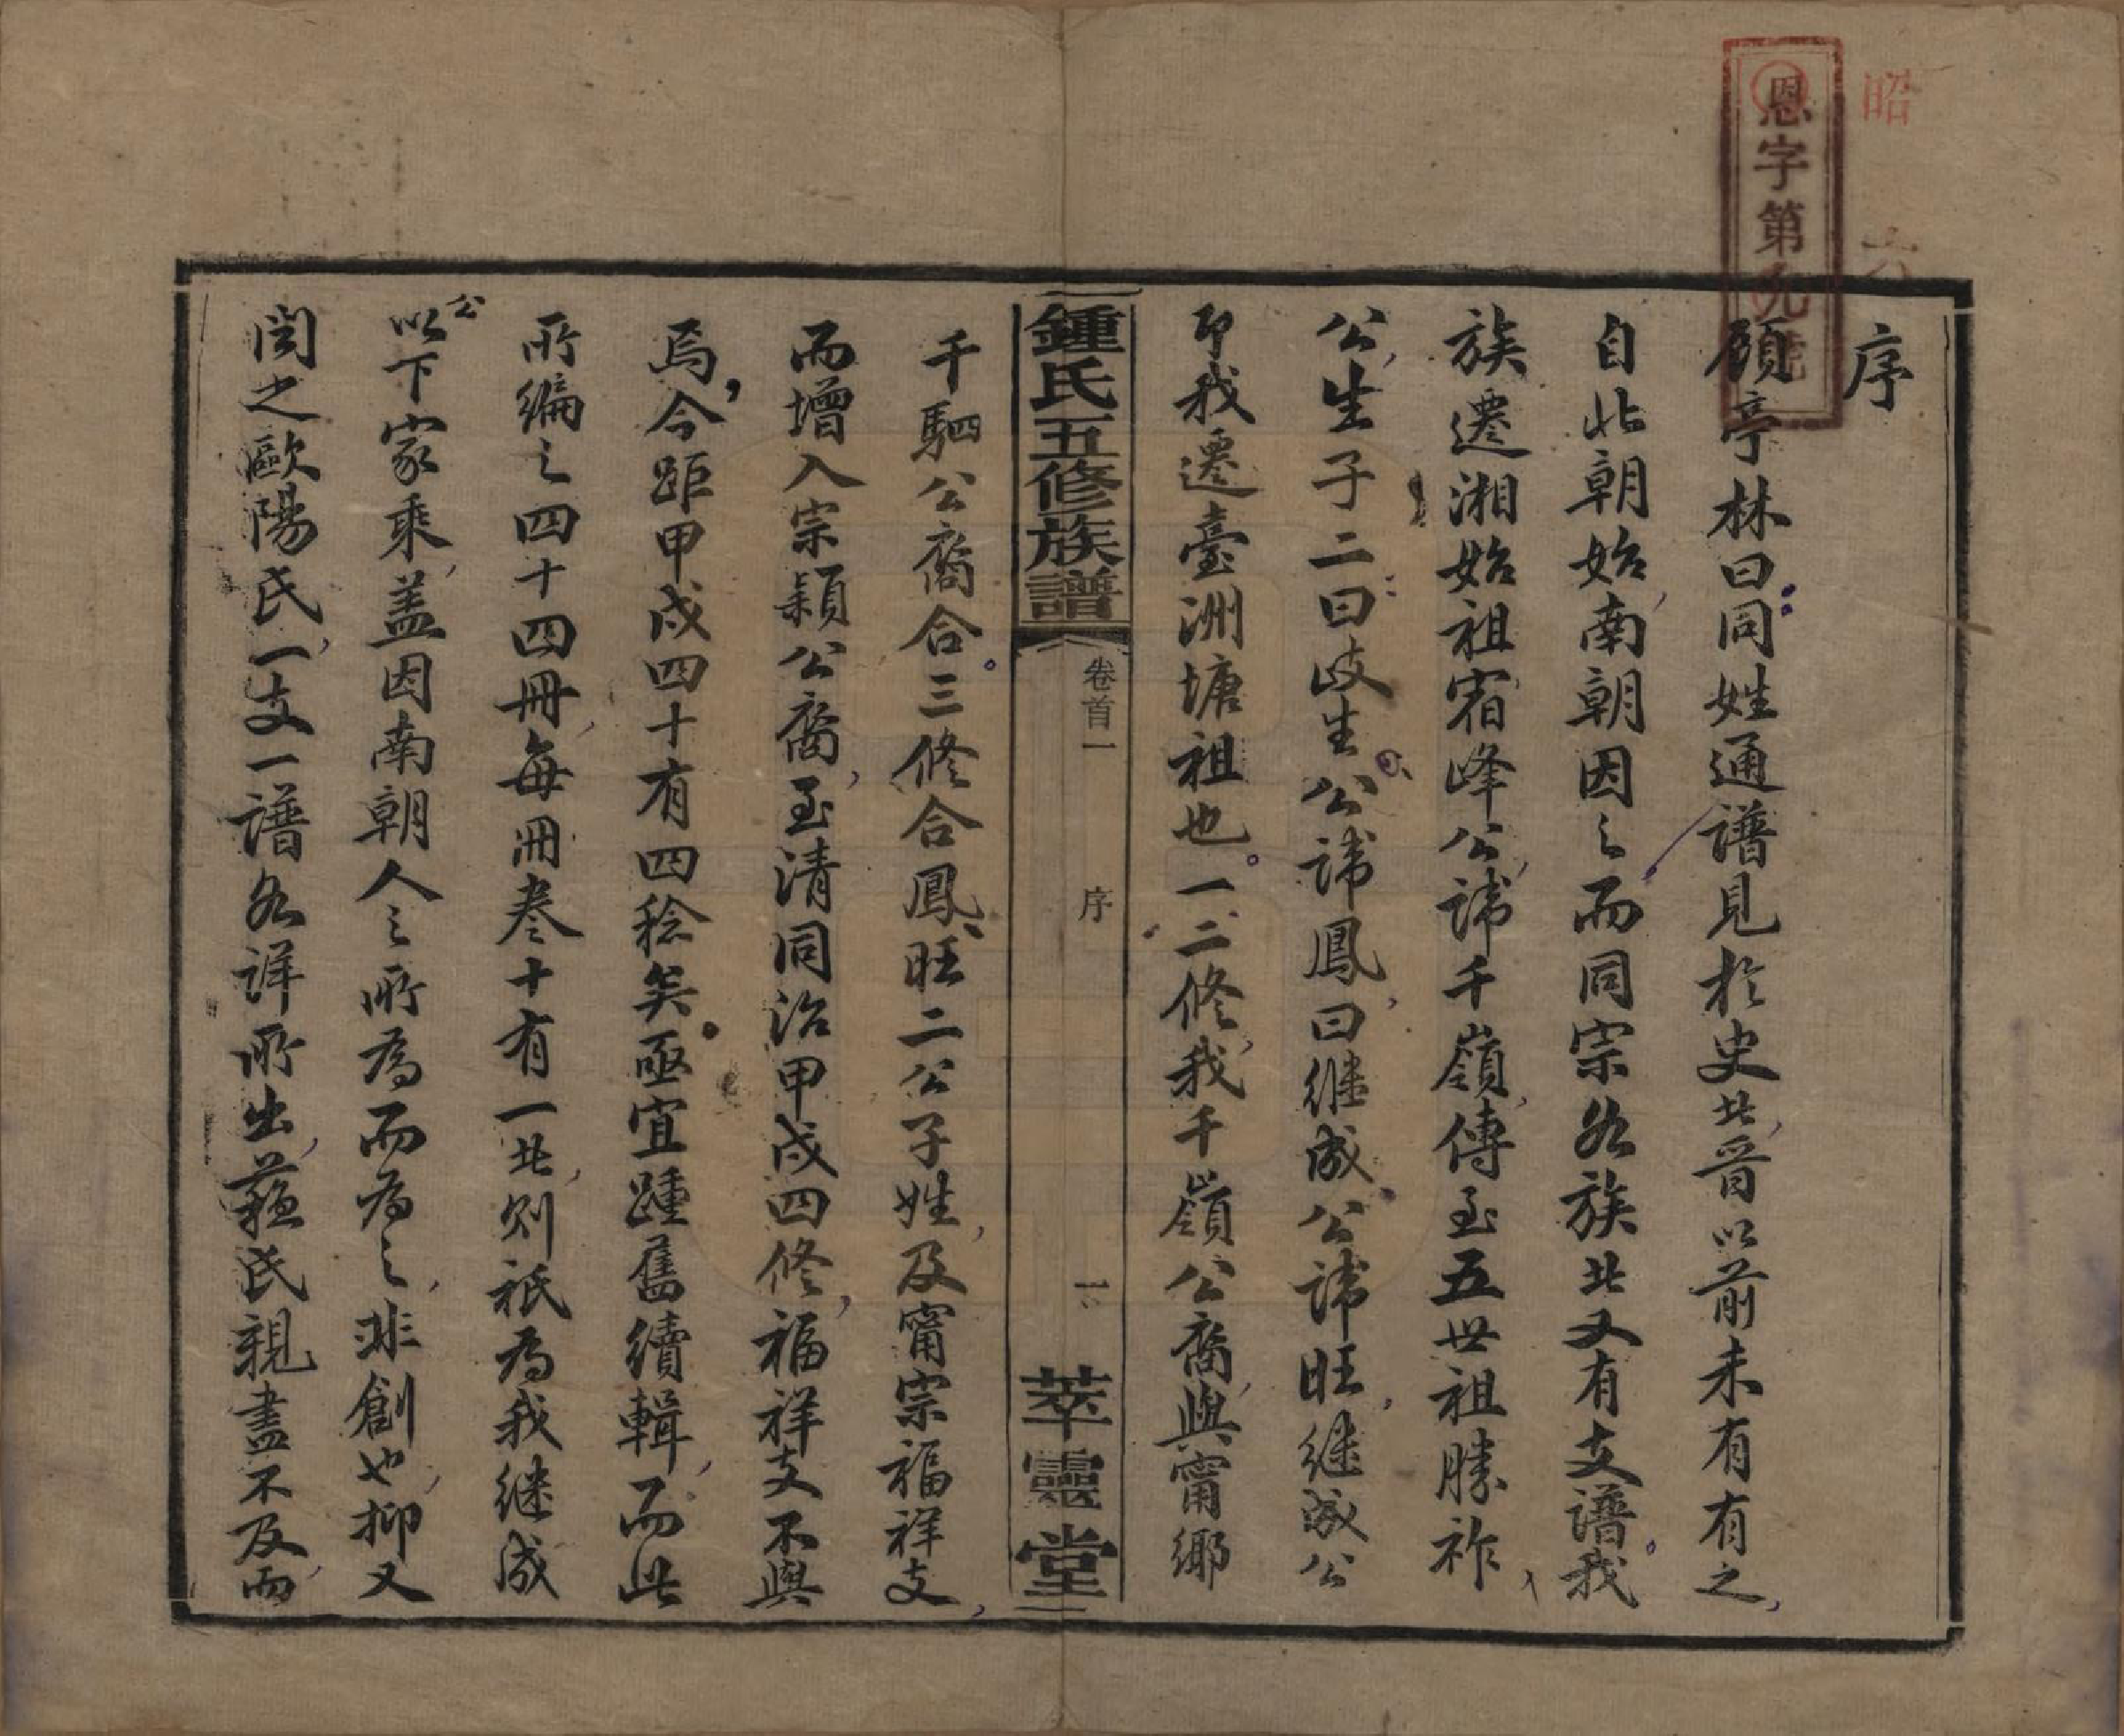 昭
六
恩字第九號
序
顧亭林曰同姓通譜見於史北晉以前未有有之
自北朝始南朝因之而同宗各族北又有支譜我
族遷湘始祖宿峰公諱千嶺傳至五世祖勝祚
公生子二曰岐生公諱鳳曰继成公諱旺继成公
即我遷臺洲塘祖也一二修我千嶺公裔與甯鄉
鍾氏五修族譜
卷首一
序
一
萃靈堂
千駟公裔合三修合鳳旺二公子姓及甯宗福祥支
而增入宗穎公裔至清同治甲戌四修福祥支不與
焉今距甲戌四十有四稔矣亟宜踵舊續輯而此
所编之四十四冊每冊卷十有一北则祇為我继成
公
以下家乘盖因南朝人之所為而為之非創也抑又
闻之歐陽氏一支一譜各詳所出蘓氏親盡不及而